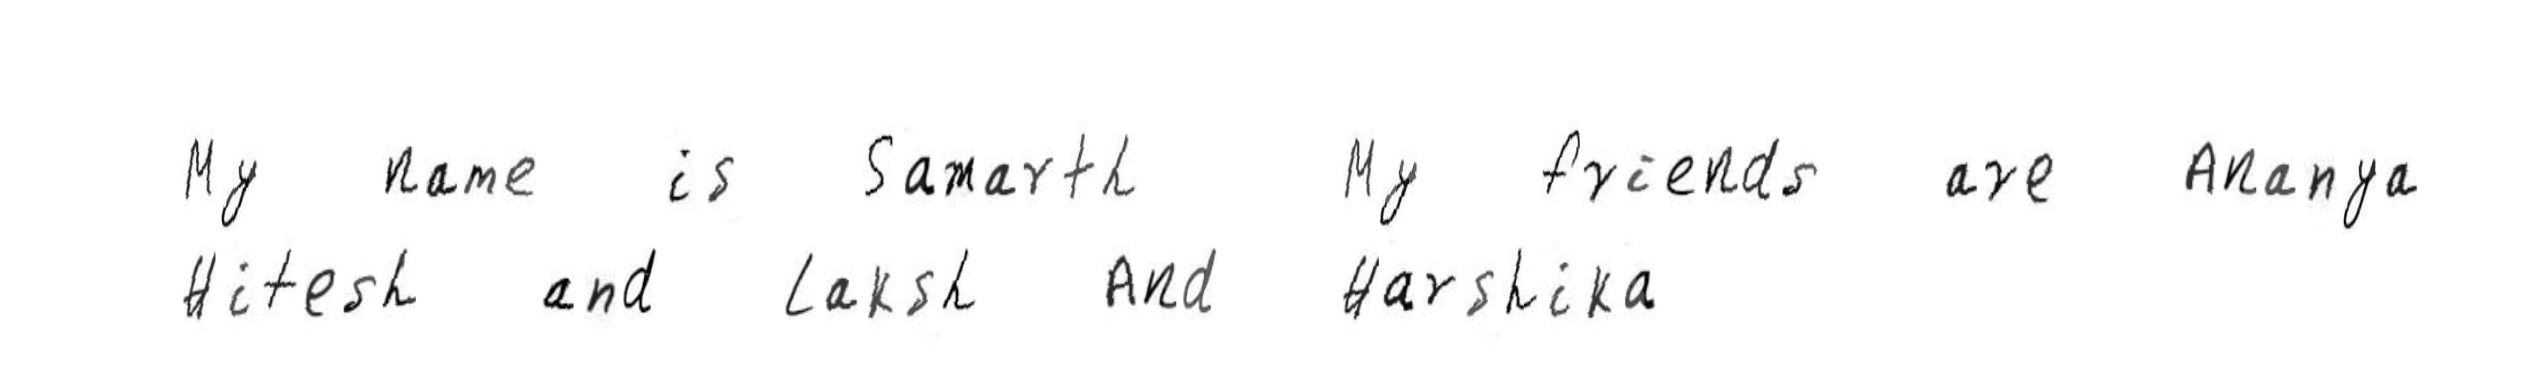 My name is Samarth My friends are Ananya
Hitesh and Laksh And Harshika